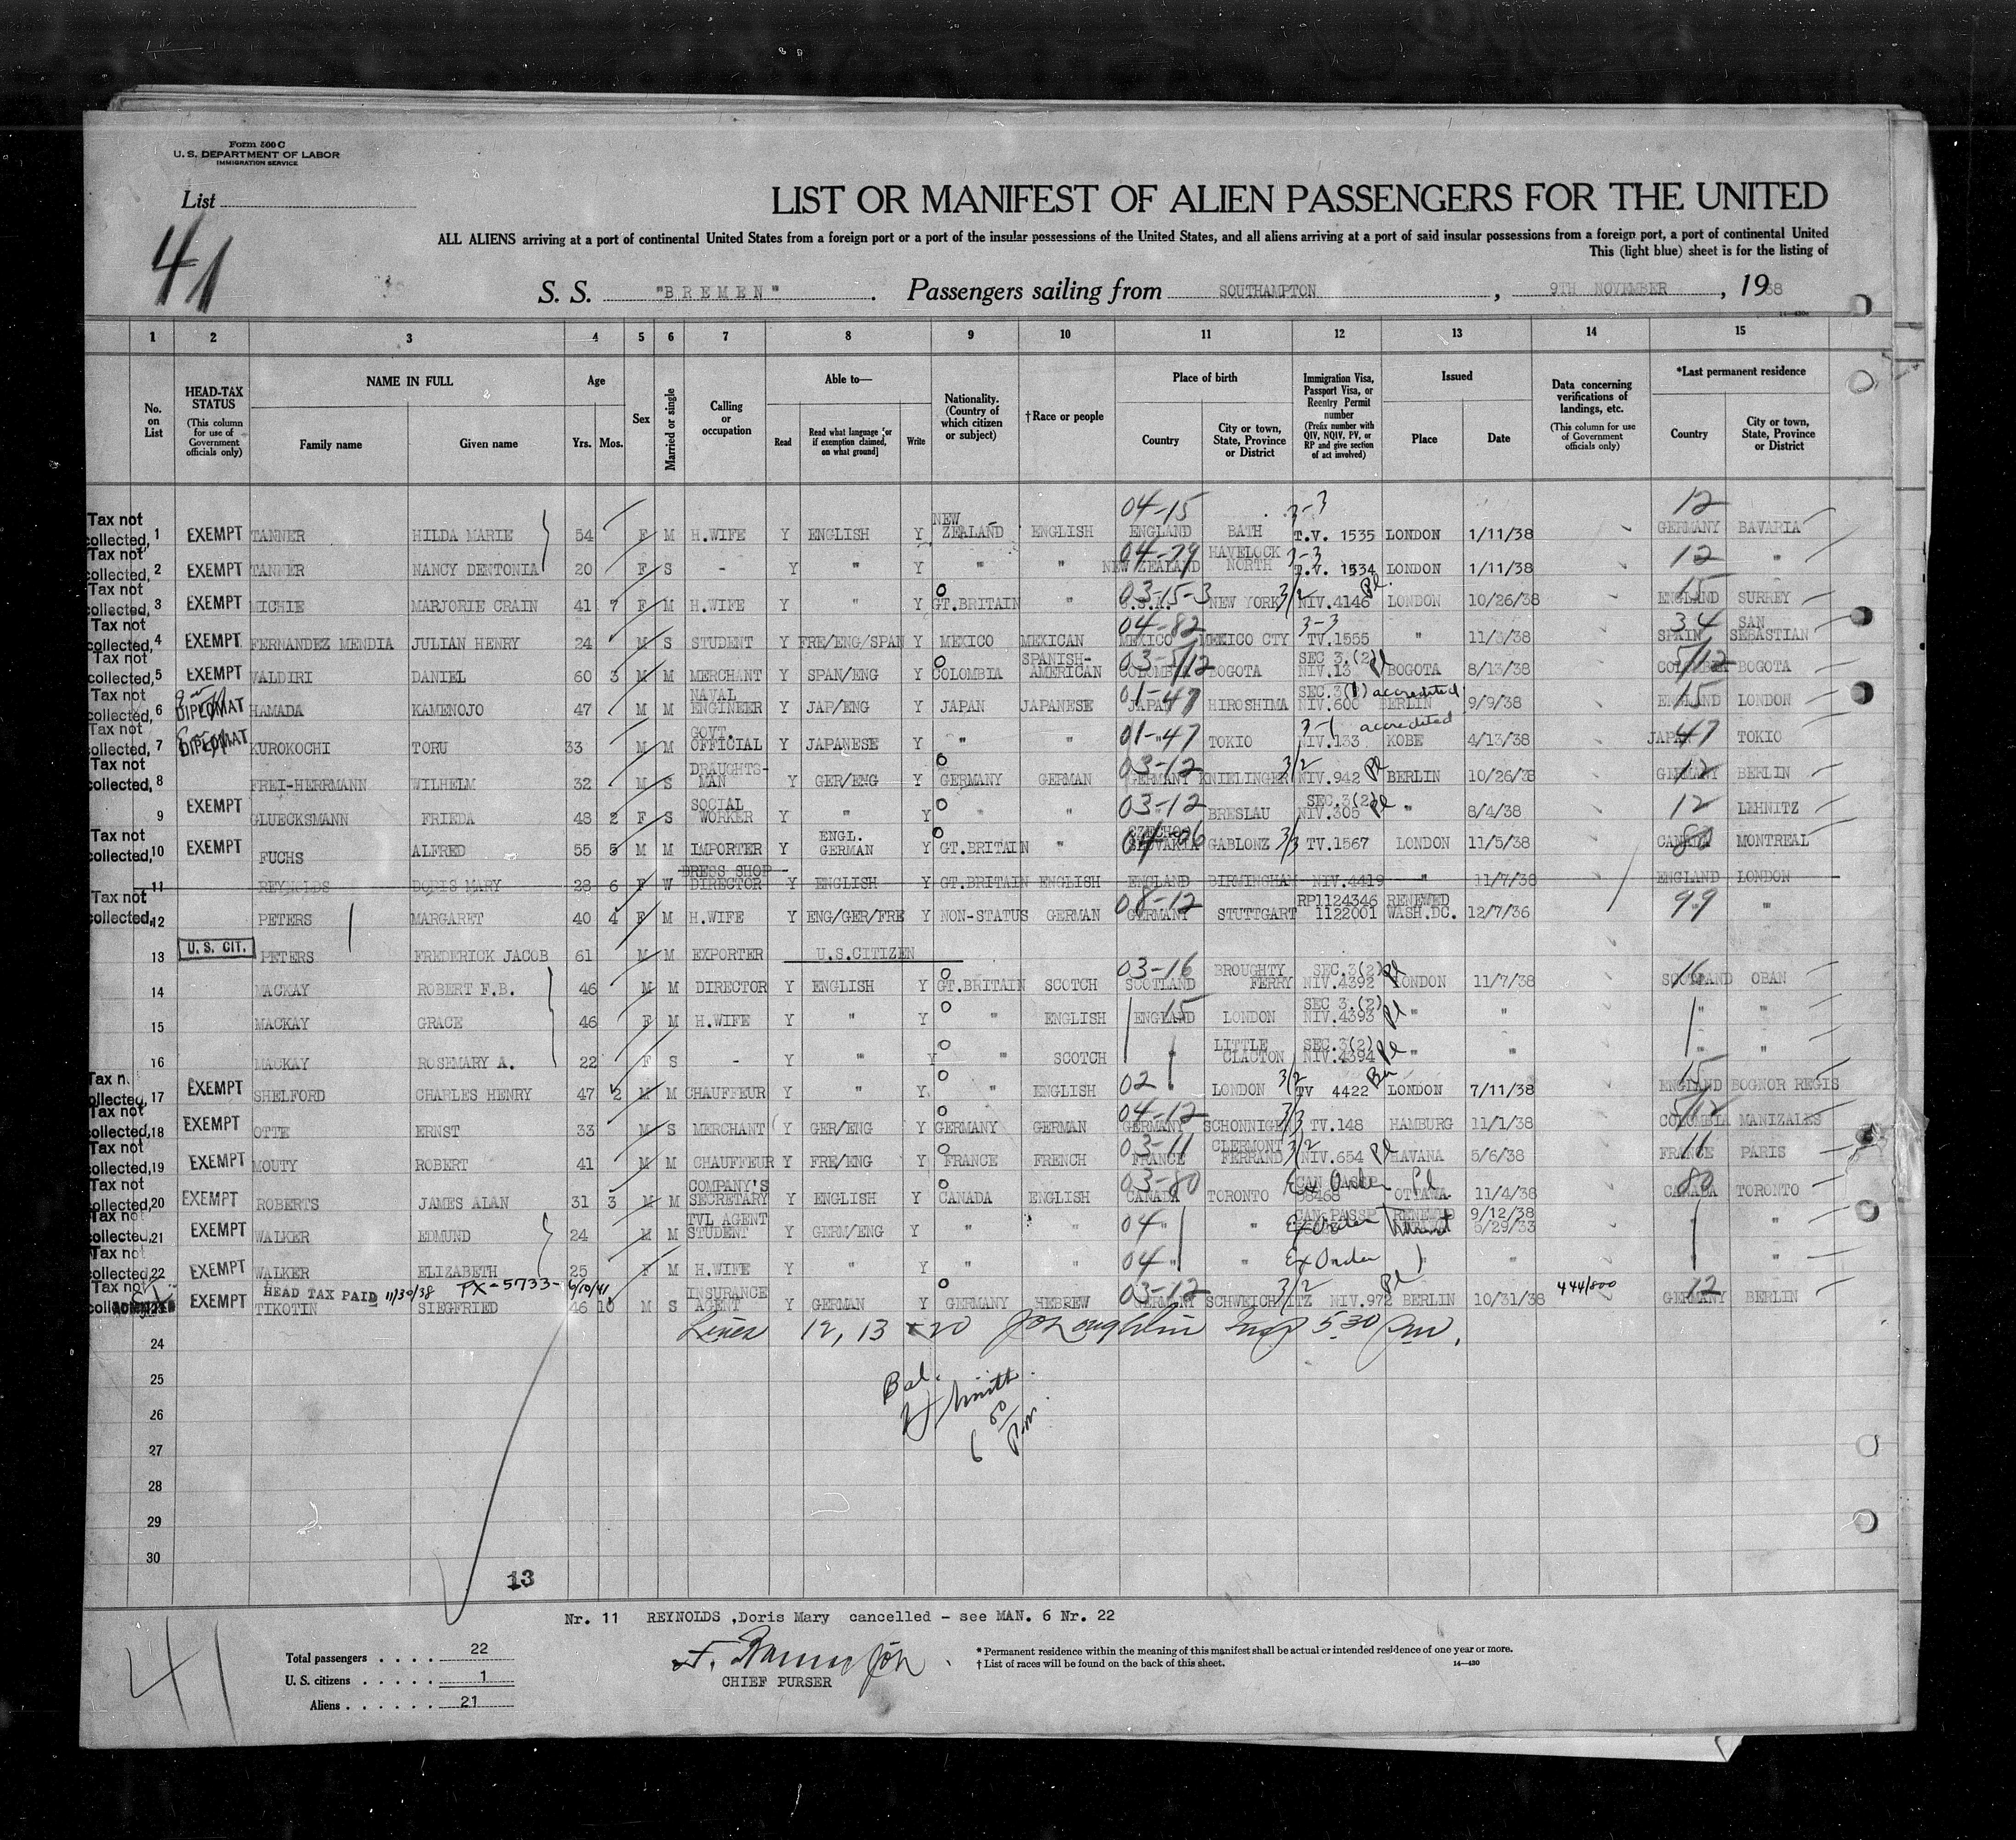 Form 500 C
U. S. DEPARTMENT OF LABOR
IMMIGRATION SERVICE
List
41
LIST OR MANIFEST OF ALIEN PASSENGERS FOR THE UNITED
ALL ALIENS arriving at a port of continental United States from a foreign port or a port of the insular possessions of the United States, and all aliens arriving at a port of said insular possessions from a foreign port, a port of continental United
This (light blue) sheet is for the listing of
S. S. "BREMEN" . Passengers sailing from SOUTHAMPTON , 9TH NOVEMBER , 1938
1 2 3 4 5 6 7 8 9 10 11 12 13 14 15
No. on List
HEAD-TAX STATUS (This column for use of Government officials only)
NAME IN FULL
Family name Given name
Age
Yrs. Mos.
Sex
Married or single
Calling or occupation
Able to—
Read
Read what language [or if exemption claimed, on what ground]
Write
Nationality. (Country of which citizen or subject)
†Race or people
Place of birth
Country City or town, State, Province or District
Immigration Visa, Passport Visa, or Reentry Permit number (Prefix number with QIV, NQIV, PV, or RP and give section of act involved)
Issued
Place Date
Data concerning verifications of landings, etc. (This column for use of Government officials only)
*Last permanent residence
Country City or town, State, Province or District
Tax not collected, 1 EXEMPT TANNER HILDA MARIE 54 F M H.WIFE Y ENGLISH Y NEW ZEALAND ENGLISH 04-15 ENGLAND BATH 3-3 T.V. 1535 LONDON 1/11/38 12 GERMANY BAVARIA
Tax not collected, 2 EXEMPT TANNER NANCY DENTONIA 20 F S - Y " Y " " 04-79 NEW ZEALAND HAVELOCK NORTH 3-3 T.V. 1534 LONDON 1/11/38 12 "
Tax not collected, 3 EXEMPT MICHIE MARJORIE CRAIN 41 7 F M H.WIFE Y " Y GT.BRITAIN " 03-15-3 U.S.A. NEW YORK 3/2 NIV.4146 Pl. LONDON 10/26/38 15 ENGLAND SURREY
Tax not collected, 4 EXEMPT FERNANDEZ MENDIA JULIAN HENRY 24 M S STUDENT Y FRE/ENG/SPAN Y MEXICO MEXICAN 04-82 MEXICO MEXICO CTY 3-3 TV.1555 " 11/3/38 34 SPAIN SAN SEBASTIAN
Tax not collected, 5 EXEMPT VALDIRI DANIEL 60 3 M M MERCHANT Y SPAN/ENG Y COLOMBIA SPANISH-AMERICAN 03-5/12 COLOMBIA BOGOTA SEC 3.(2) NIV.13 Pl BOGOTA 8/13/38 5/12 COLOMBIA BOGOTA
Tax not collected, 6 DIPLOMAT HAMADA KAMENOJO 47 M M NAVAL ENGINEER Y JAP/ENG Y JAPAN JAPANESE 01-47 JAPAN HIROSHIMA SEC.3(1) accredited NIV.600 BERLIN 9/9/38 15 ENGLAND LONDON
Tax not collected, 7 DIPLOMAT KUROKOCHI TORU 33 M M GOVT. OFFICIAL Y JAPANESE Y " " 01-47 " TOKIO 3-1 accredited NIV.133 KOBE 4/13/38 JAPAN 47 TOKIO
Tax not collected, 8 FREI-HERRMANN WILHELM 32 M S DRAUGHTS-MAN Y GER/ENG Y GERMANY GERMAN 03-12 GERMANY KNIELINGEN 3/2 NIV.942 Pl BERLIN 10/26/38 12 GERMANY BERLIN
9 EXEMPT GLUECKSMANN FRIEDA 48 2 F S SOCIAL WORKER Y " Y " " 03-12 " BRESLAU SEC.3(2) NIV.305 Pl " 8/4/38 12 LEHNITZ
Tax not collected, 10 EXEMPT FUCHS ALFRED 55 5 M M IMPORTER Y ENGL. GERMAN Y GT.BRITAIN " 04-06 CZECHO SLOVAKIA GABLONZ 3/3 TV.1567 LONDON 11/5/38 CANADA 80 MONTREAL
11 REYNOLDS DORIS MARY 28 6 F W DRESS SHOP DIRECTOR Y ENGLISH Y GT.BRITAIN ENGLISH ENGLAND BIRMINGHAM NIV.4419 " 11/7/38 ENGLAND LONDON
Tax not collected, 12 PETERS MARGARET 40 4 F M H.WIFE Y ENG/GER/FRE Y NON-STATUS GERMAN 08-12 GERMANY STUTTGART RP1124346 1122001 RENEWED WASH.DC. 12/7/36 99 " "
13 U. S. CIT. PETERS FREDERICK JACOB 61 M M EXPORTER U.S.CITIZEN
14 MACKAY ROBERT F.B. 46 M M DIRECTOR Y ENGLISH Y GT.BRITAIN SCOTCH 03-16 SCOTLAND BROUGHTY FERRY SEC.3(2) NIV.4392 Pl LONDON 11/7/38 16 SCOTLAND OBAN
15 MACKAY GRACE 46 F M H.WIFE Y " Y " ENGLISH 15 ENGLAND LONDON SEC 3.(2) NIV.4393 Pl " " " "
16 MACKAY ROSEMARY A. 22 F S - Y " Y " SCOTCH " LITTLE CLACTON SEC.3(2) NIV.4394 Pl " " " "
Tax n. collected, 17 EXEMPT SHELFORD CHARLES HENRY 47 2 M M CHAUFFEUR Y " Y " ENGLISH 02 LONDON 3/2 TV 4422 LONDON 7/11/38 15 ENGLAND BOGNOR REGIS
Tax not collected, 18 EXEMPT OTTE ERNST 33 M S MERCHANT Y GER/ENG Y GERMANY GERMAN 04-12 GERMANY SCHONNIGEN 3/3 TV.148 HAMBURG 11/1/38 5/12 COLOMBIA MANIZALES
Tax not collected, 19 EXEMPT MOUTY ROBERT 41 M M CHAUFFEUR Y FRE/ENG Y FRANCE FRENCH 03-11 FRANCE CLERMONT FERRAND 3/2 NIV.654 Pl HAVANA 5/6/38 11 FRANCE PARIS
Tax not collected, 20 EXEMPT ROBERTS JAMES ALAN 31 3 M M COMPANY'S SECRETARY Y ENGLISH Y CANADA ENGLISH 03-80 CANADA TORONTO Ex Order Pl OTTAWA 11/4/38 80 CANADA TORONTO
Tax not collected, 21 EXEMPT WALKER EDMUND 24 M M TVL AGENT STUDENT Y GERM/ENG Y " " 04 " " CAN.PASSP Ex Order RENEWED 9/12/38 6/29/33 " "
Tax not collected 22 EXEMPT WALKER ELIZABETH 25 F M H.WIFE Y " Y " " 04 " " Ex Order " " "
Tax not collected HEAD TAX PAID 11/30/38 PX-5733- 6/10/41
ADMITTED EXEMPT TIKOTIN SIEGFRIED 46 10 M S INSURANCE AGENT Y GERMAN Y GERMANY HEBREW 03-12 GERMANY SCHWEICHNITZ 3/2 NIV.972 Pl BERLIN 10/31/38 444/800 12 GERMANY BERLIN
24 Lines 12, 13 x 20 Insp 5 30 P.M.
25 Bal.
26 Smith
27 6 50 P.M.
28
29
30
13
Nr. 11 REYNOLDS ,Doris Mary cancelled - see MAN. 6 Nr. 22
41
Total passengers . . . . 22
U. S. citizens . . . . . 1
Aliens . . . . . . 21
CHIEF PURSER
* Permanent residence within the meaning of this manifest shall be actual or intended residence of one year or more.
† List of races will be found on the back of this sheet.
14—430